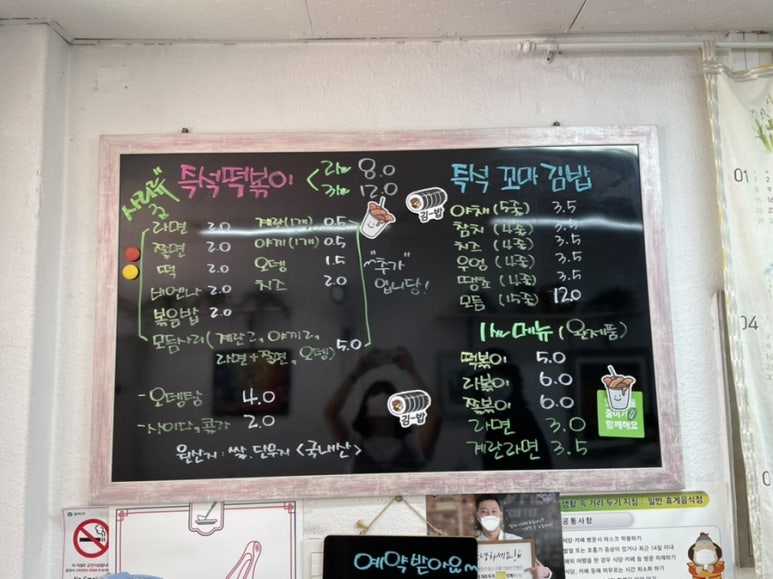 즉석떡볶이 < 2人 8.0
3人 12.0
사리
라면 2.0 계란(1개) 0.5
쫄면 2.0 야끼(1개) 0.5
떡 2.0 오뎅 1.5
비엔나 2.0 치즈 2.0
볶음밥 2.0
모듬사리(계란2, 야끼2,
라면+쫄면, 오뎅) 5.0
"추가"
입니당!
- 오뎅탕 4.0
- 사이다, 콜라 2.0
원산지: 쌀, 단무지 <국내산>
즉석 꼬마 김밥
야채(5줄) 3.5
참치(4줄) 3.5
치즈(4줄) 3.5
우엉(4줄) 3.5
땡초(4줄) 3.5
모듬(15줄) 12.0
1人메뉴(완제품)
떡볶이 5.0
라볶이 6.0
쫄볶이 6.0
라면 3.0
계란라면 3.5
김-밥
김-밥
함께해요
예약받아요
생활 속 거리 두기 지침 : 일반·휴게음식점
공통사항
01
04